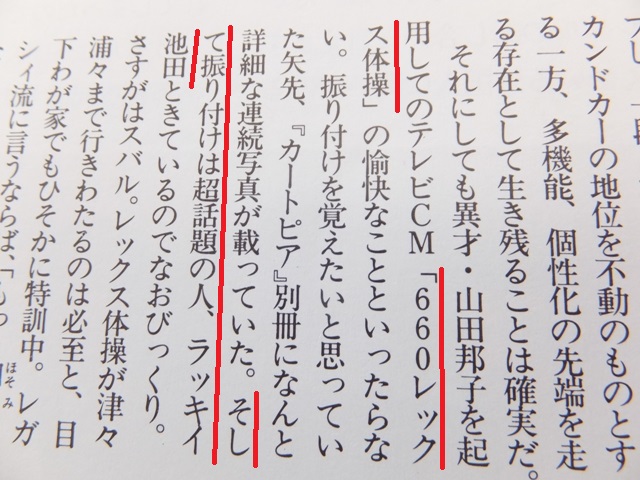 カンドカーの地位を不動のものとす
る一方、多機能、個性化の先端を走
る存在として生き残ることは確実だ。
それにしても異才・山田邦子を起
用してのテレビCM「660レック
ス体操」の愉快なことといったらな
い。振り付けを覚えたいと思ってい
た矢先、『カートピア』別冊になんと
詳細な連続写真が載っていた。そし
て振り付けは超話題の人、ラッキイ
池田ときているのでなおびっくり。
さすがはスバル。レックス体操が津々
浦々まで行きわたるのは必至と、目
下わが家でもひそかに特訓中。レガ
シィ流に言うならば、「もっ
ほそみ